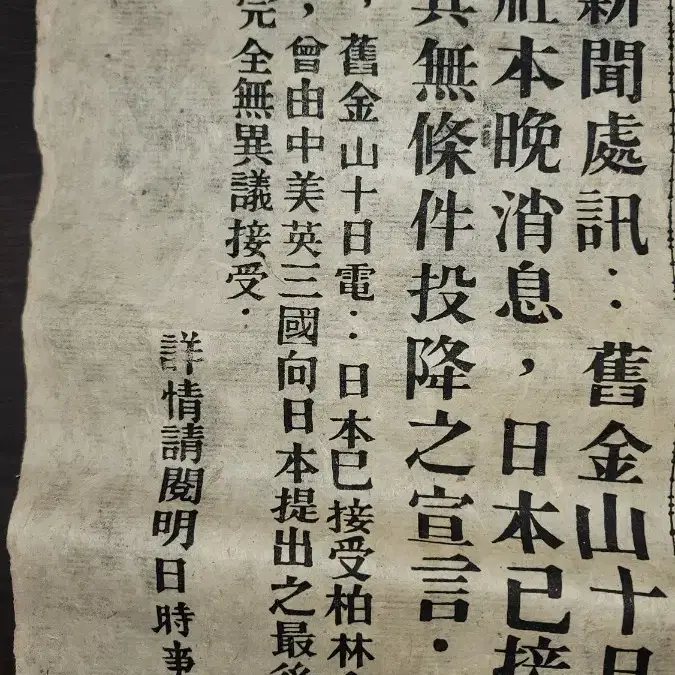 新聞處訊：舊金山十日
社本晚消息，日本已接
其無條件投降之宣言．
，舊金山十日電：日本已接受柏林
，曾由中美英三國向日本提出之最後
完全無異議接受．
詳情請閱明日時事